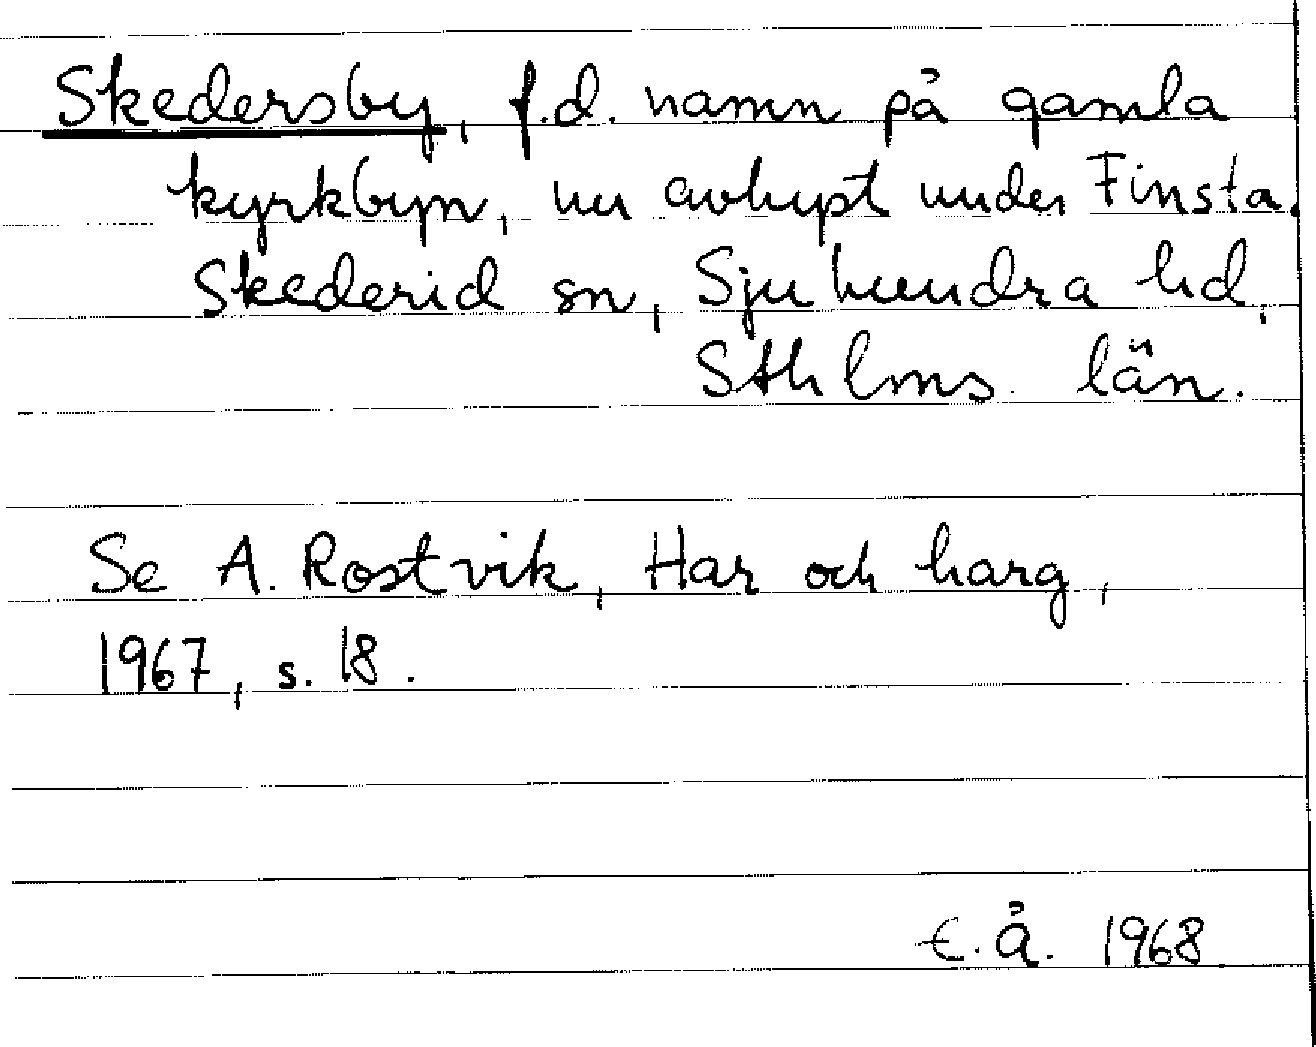 Skedersby, f.d. namn på gamla
kyrkbyn, nu avhyst under Finsta.
Skederid sn, Sjuhundra hd,
Sthlms län.
Se A. Rostvik, Har och harg,
1967, s. 18.
E.Å. 1968